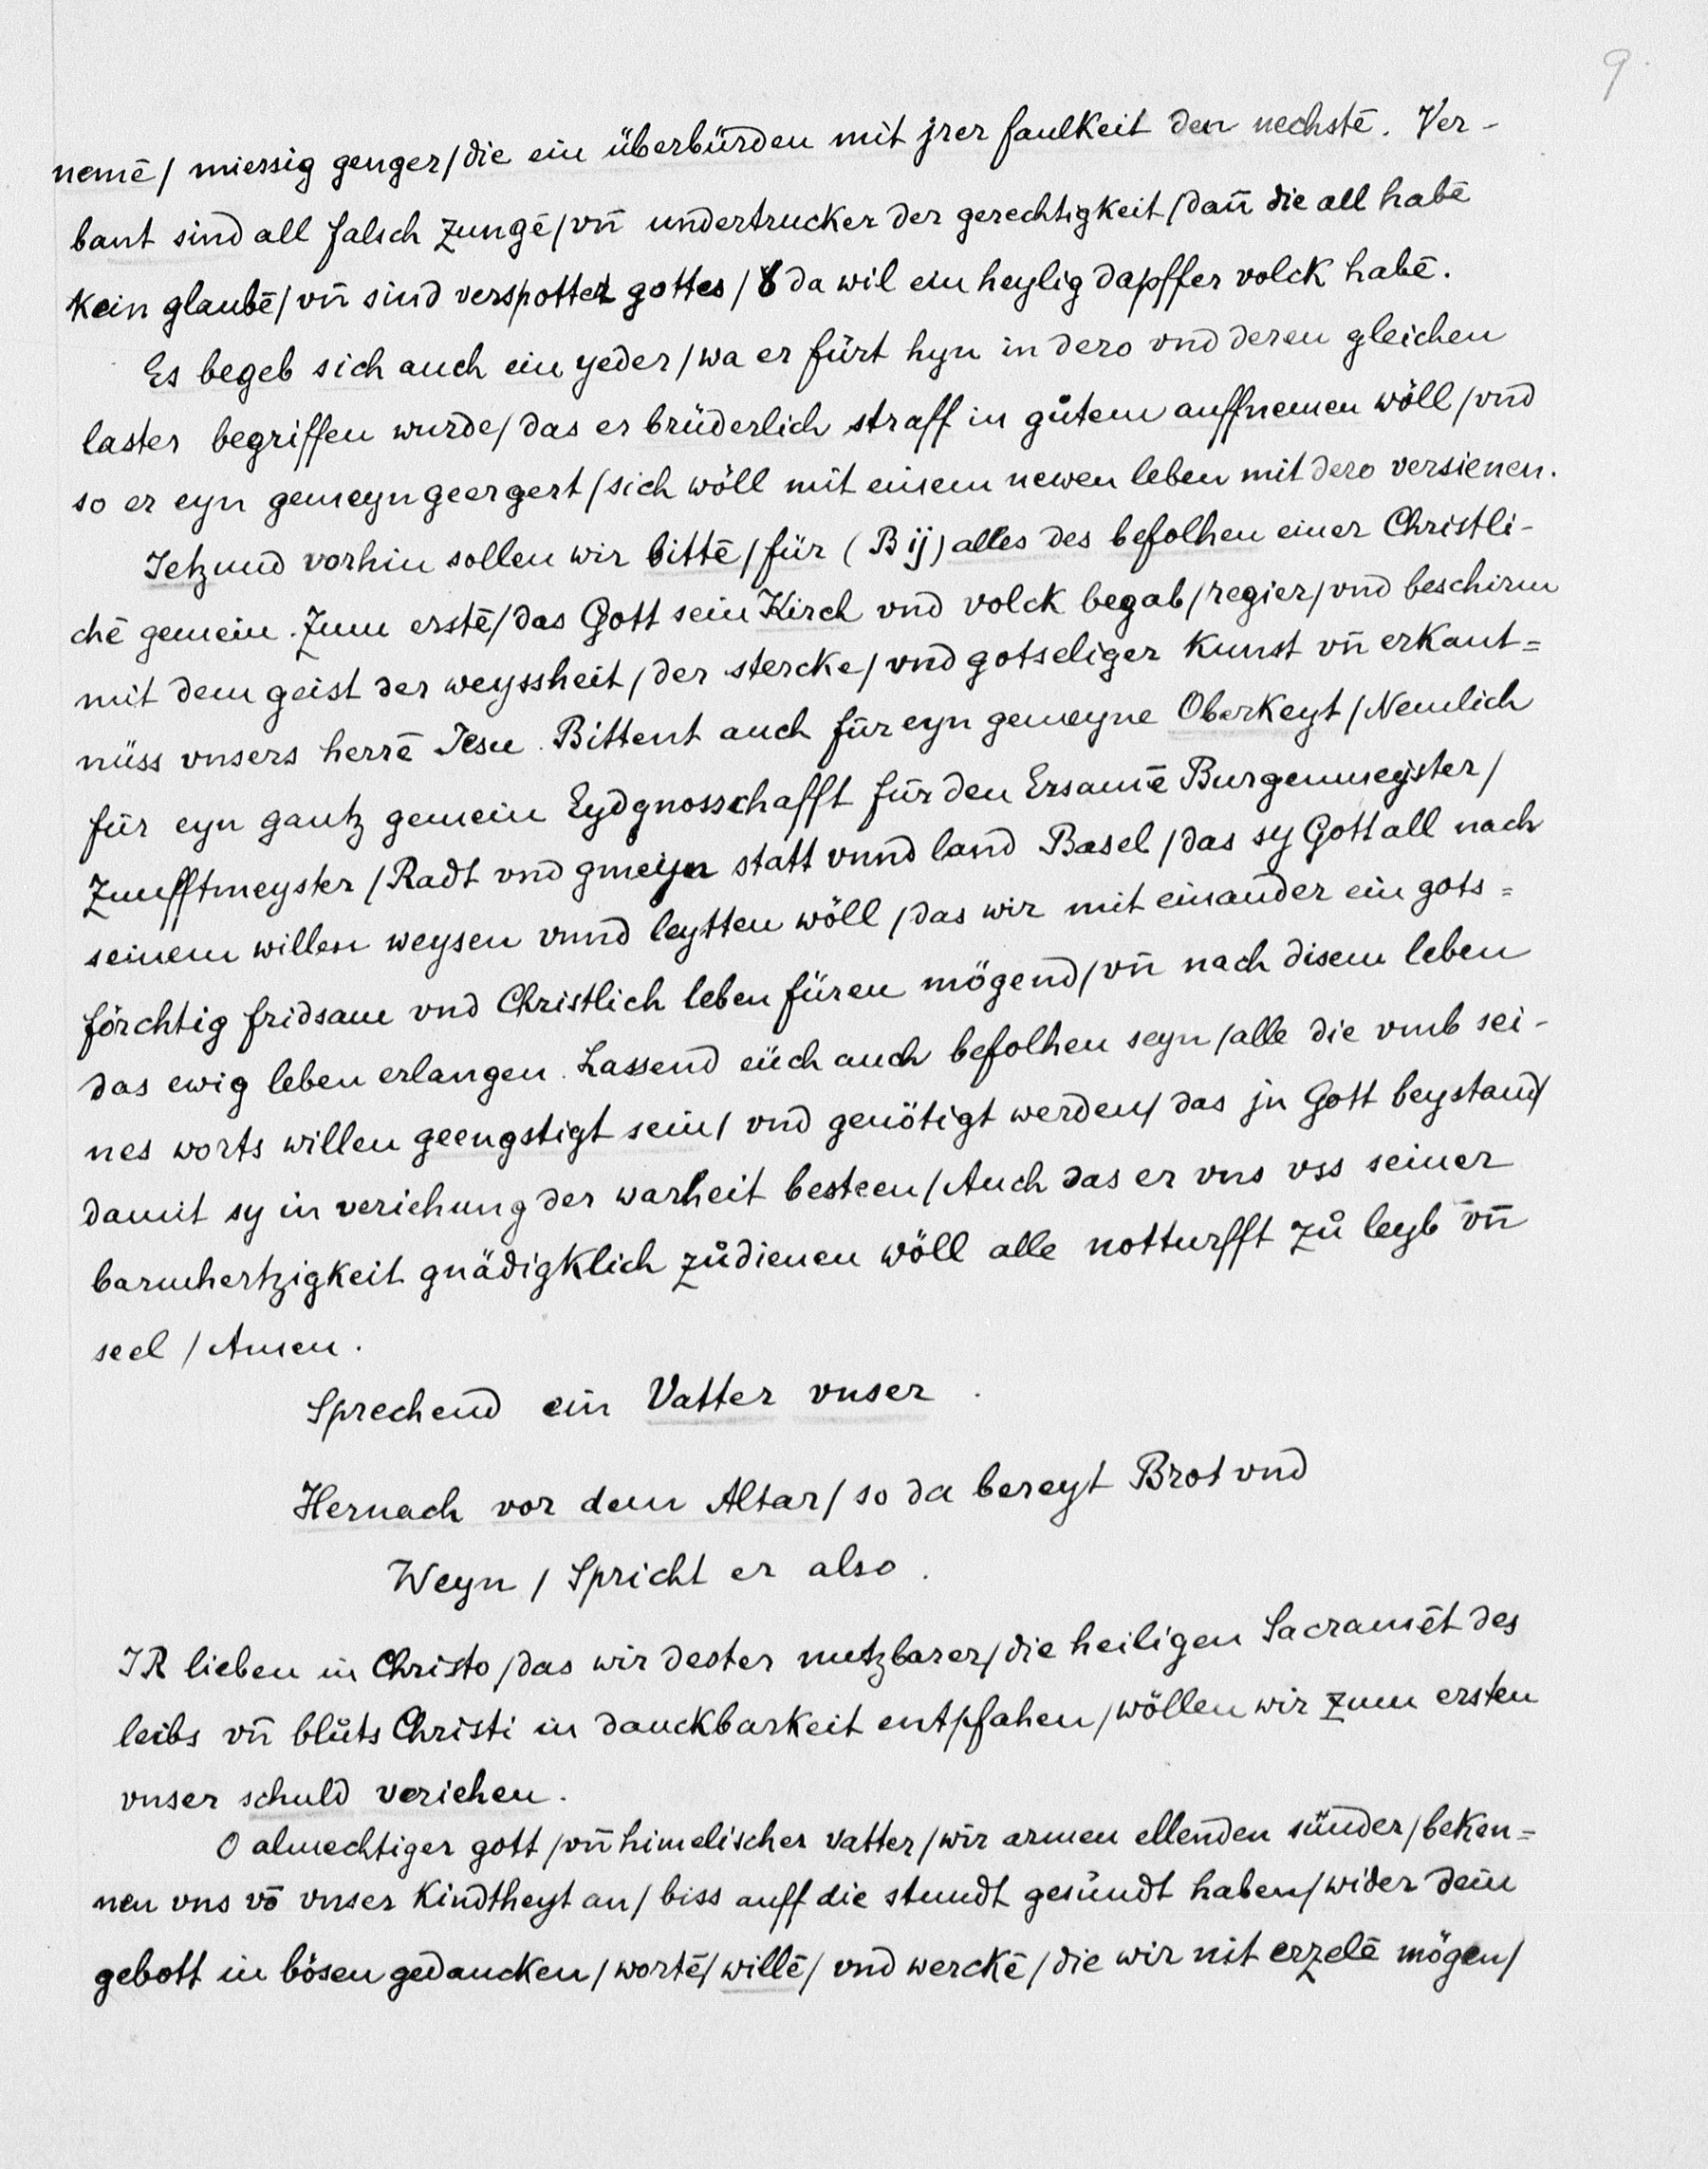 9.
nemē / miessig genger / die ein überbürden mit jrer faulkeit den nechstē. Ver-
bant sind all falsch zungē / vn̄ undertrucker der gerechtigkeit / dan̄ die all habē
kein glaubē / vn̄ sind verspotter gottes / d da wil ein heylig dapffer volck habē.
Es begeb sich auch ein yeder / wa er fürt hyn in dero vnd deren gleichen
laster begriffen wurde / das er brüderlich straff in gůtem auffnemen wöll / vnd
so er eyn gemeyn geergert / sich wöll mit einem newen leben mit dero versienen.
Jetzund vorhin sollen wir bittē / für (B ij) alles des befolhen einer Christli-
chē gemein. Zum erstē / das Gott sein Kirch vnd volck begab / regier / vnd beschirm
mit dem geist der weyssheit / der stercke / vnd gotseliger kunst vn̄ erkant=
nüss vnsers herrē Jesu. Bittent auch für eyn gemeyne Oberkeyt / Nemlich
für eyn gantz gemein Eydgnosschafft für den Ersamē Burgenmeyster /
Zunfftmeyster / Radt vnd gmeyn statt vnnd land Basel / das sy Gott all nach
seinem willen weysen vnnd leytten wöll / das wir mit einander ein gots=
förchtig fridsam vnd Christlich leben füren mögend / vn̄ nach disem leben
das ewig leben erlangen. Lassend eüch auch befolhen seyn / alle die vmb sei-
nes worts willen geengstigt sein / vnd genötigt werden / das jn Gott beystand /
damit sy in veriehung der warheit besteen / Auch das er vns vss seiner
barmhertzigkeit gnädigklich zůdienen wöll alle notturfft zů leyb vn̄
seel / Amen.
Sprechend ein Vatter vnser.
Hernach vor dem Altar / so da bereyt Brot vnd
Weyn / Spricht er also.
IR lieben in Christo / das wir dester nutzbarer / die heiligen Sacramēt des
leibs vn̄ blůts Christi in danckbarkeit entpfahen / wöllen wir zum ersten
vnser schuld veriehen.
O almechtiger gott / vn̄ himelischer vatter / wir armen ellenden sünder / beken=
nen vns vō vnser kindtheyt an / biss auff die stundt gesündt haben / wider dein
gebott in bösen gedancken / wortē / willē / vnd werckē / die wir nit erzelē mögen /